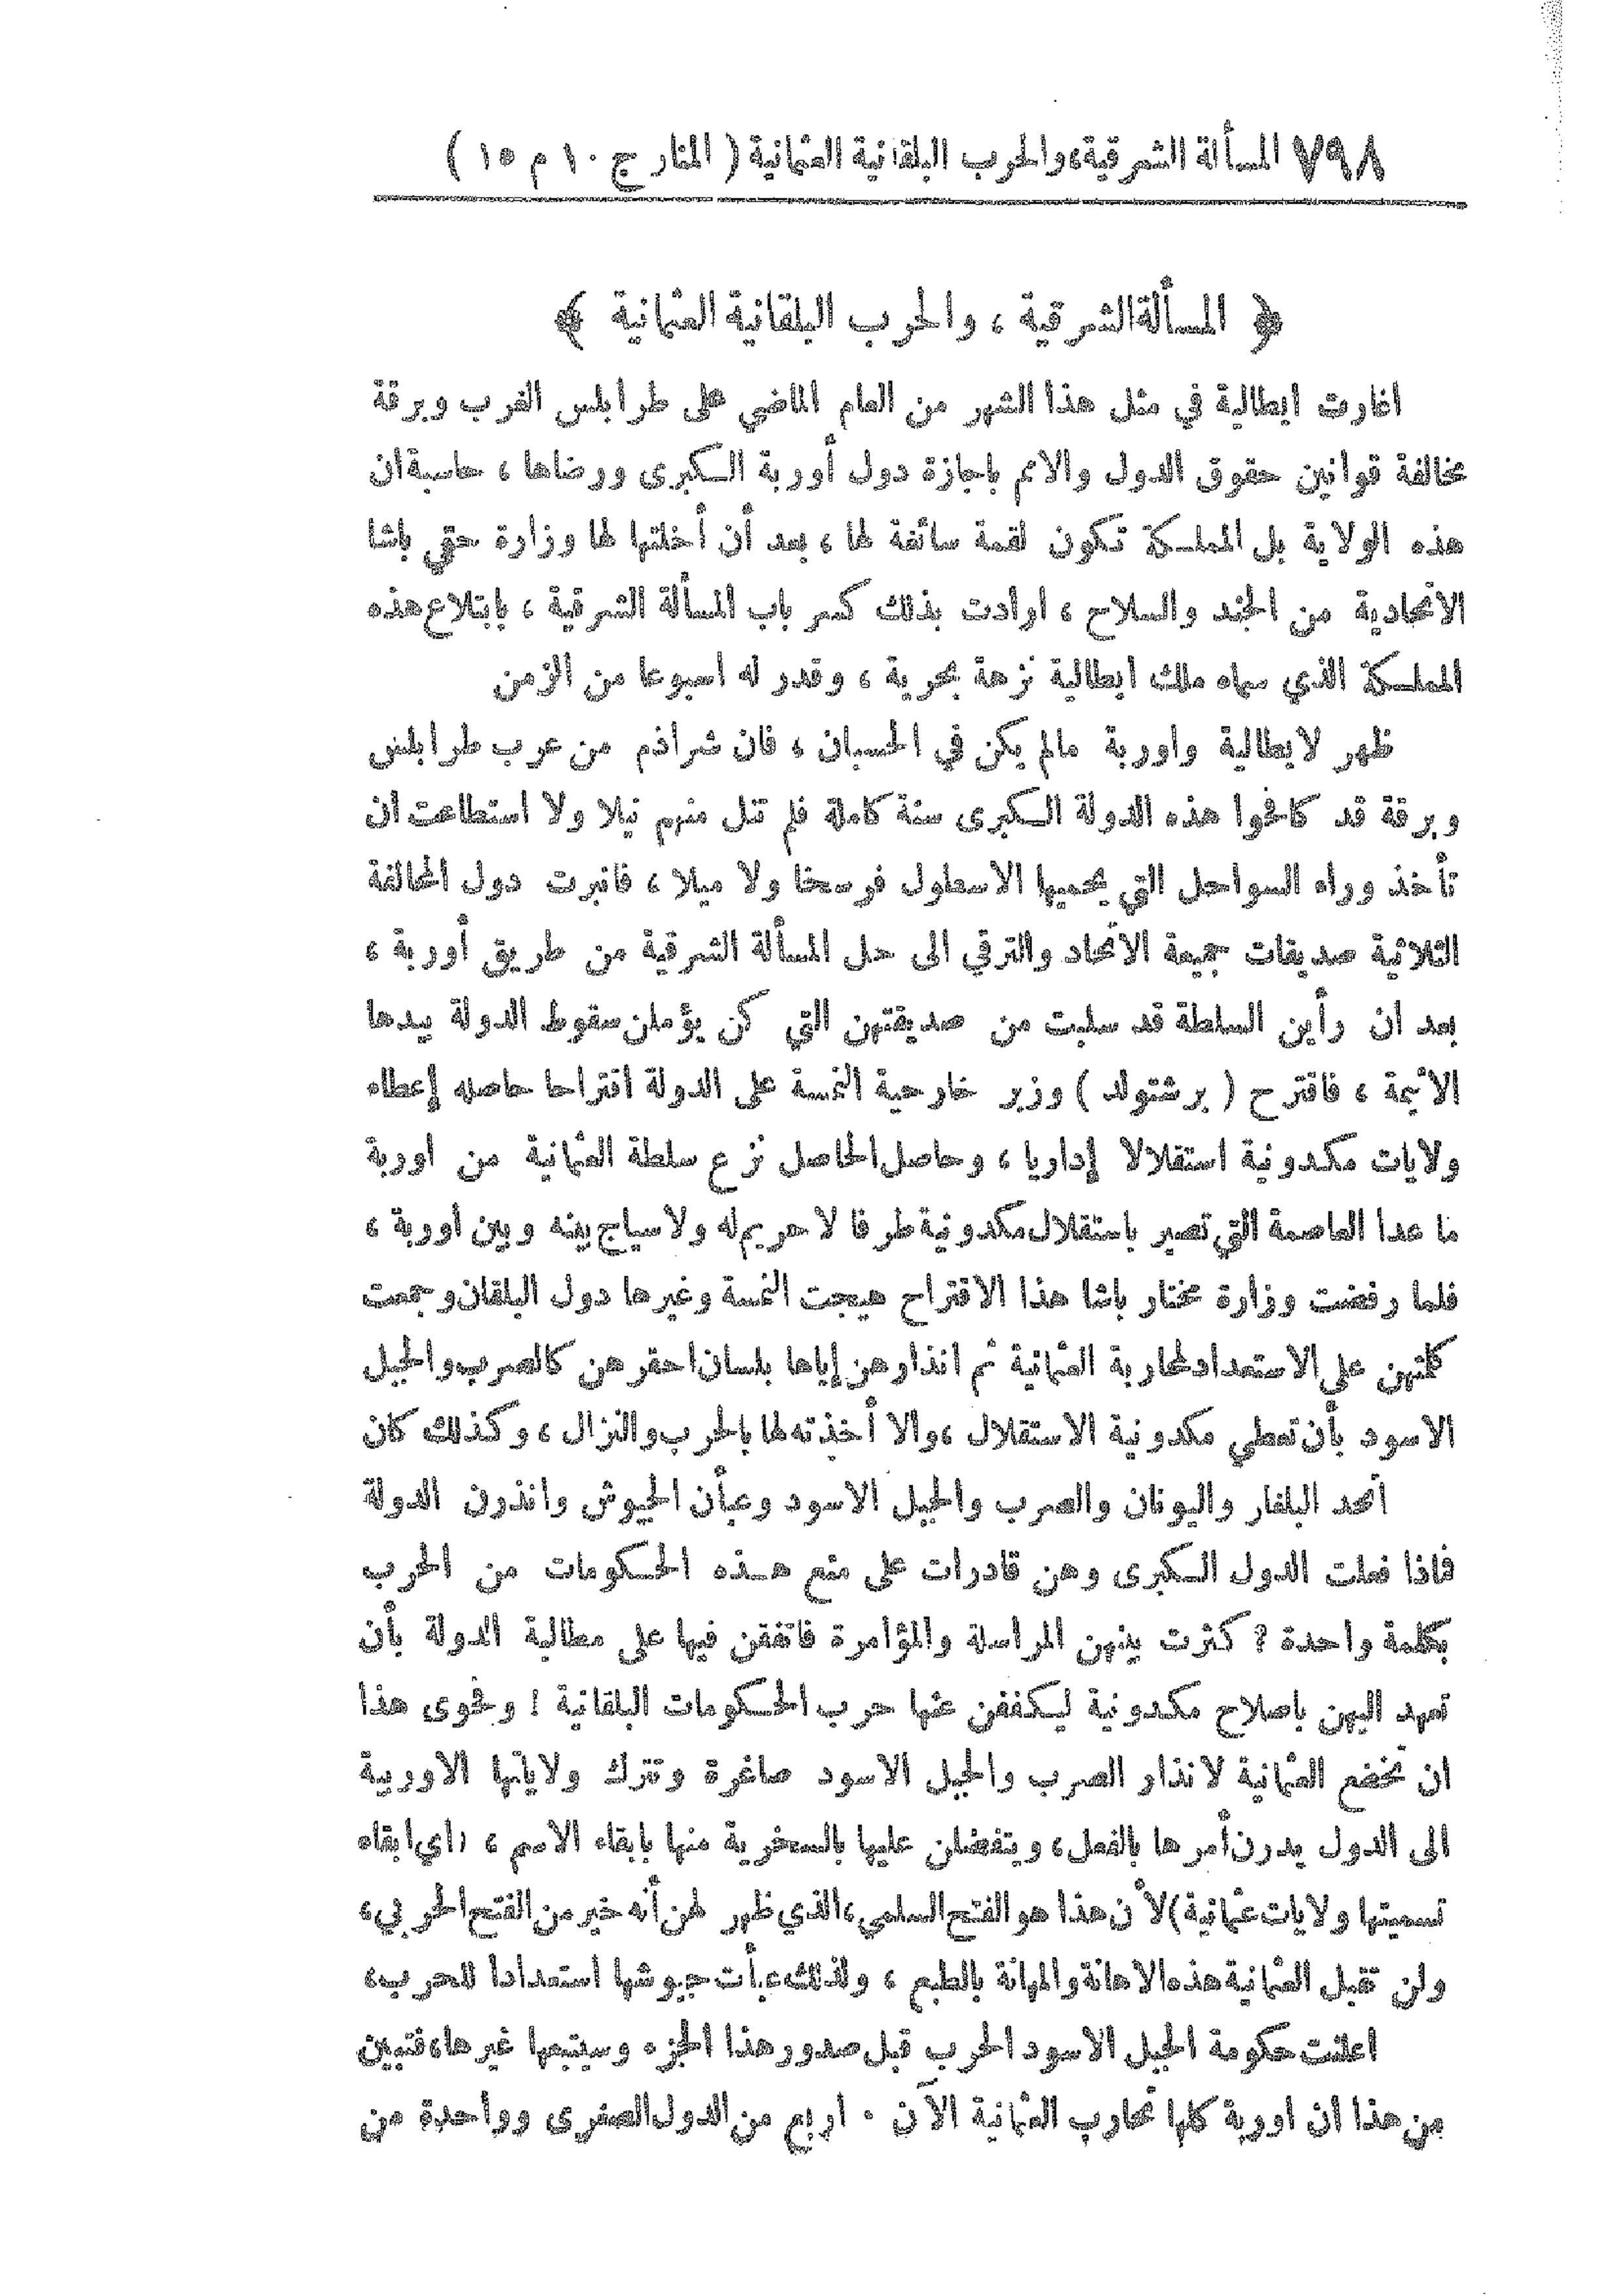 ٧٩٨ المسألة الشرقية، والحرب البلقانية العثمانية ( المنار ج ١٠ م ١٥ )
﴿ المسألة الشرقية ، والحرب البلقانية العثمانية ﴾
اغارت ايطالية في مثل هذا الشهر من العام الماضي على طرابلس الغرب وبرقة
مخالفة قوانين حقوق الدول والامم باجازة دول أوربة الكبرى ورضاها ، حاسبة ان
هذه الولاية بل المملكة تكون لقمة سائغة لها ، بعد أن أخلتها لها وزارة حقي باشا
الاتحادية من الجند والسلاح ، ارادت بذلك كسر باب المسألة الشرقية ، بابتلاع هذه
المملكة الذي سماه ملك ايطالية نزهة بحرية ، وقدر له اسبوعا من الزمن
ظهر لايطالية واوربة مالم يكن في الحسبان ، فان شراذم من عرب طرابلس
وبرقة قد كافحوا هذه الدولة الكبرى سنة كاملة فلم تنل منهم نيلا ولا استطاعت ان
تأخذ وراء السواحل التي يحميها الاسطول فرسخا ولا ميلا ، فانبرت دول المحالفة
الثلاثية صديقات جمعية الاتحاد والترقي الى حل المسألة الشرقية من طريق أوربة ،
بعد ان رأين السلطة قد سلبت من صديقتهن التي كن يؤملن سقوط الدولة بيدها
الاثيمة ، فاقترح ( برشتولد ) وزير خارجية النمسة على الدولة اقتراحا حاصله إعطاء
ولايات مكدونية استقلالا إداريا ، وحاصل الحاصل نزع سلطة العثمانية من اوربة
ما عدا العاصمة التي تصير باستقلال مكدونية طرفا لا حريم له ولا سياج بينه وبين أوربة ،
فلما رفضت وزارة مختار باشا هذا الاقتراح هيجت النمسة وغيرها دول البلقان وجمعت
كلمتهن على الاستعداد لمحاربة العثمانية ثم انذارهن إياها بلسان احقرهن كالصرب والجبل
الاسود بأن تعطي مكدونية الاستقلال ، والا أخذته لها بالحرب والنزال ، وكذلك كان
اتحد البلغار واليونان والصرب والجبل الاسود وعبأن الجيوش وانذرن الدولة
فاذا فعلت الدول الكبرى وهن قادرات على منع هذه الحكومات من الحرب
بكلمة واحدة ؟ كثرت بينهن المراسلة والمؤامرة فاتفقن فيها على مطالبة الدولة بأن
تعهد اليهن باصلاح مكدونية ليكففن عنها حرب الحكومات البلقانية ! وفحوى هذا
ان تخضع العثمانية لانذار الصرب والجبل الاسود صاغرة وتترك ولاياتها الاوربية
الى الدول يدرن أمرها بالفعل ، ويتفضلن عليها بالسخرية منها بابقاء الاسم ، (اي ابقاء
تسميتها ولايات عثمانية) لأن هذا هو الفتح السلمي ، الذي ظهر لهن أنه خير من الفتح الحربي ،
ولن تقبل العثمانية هذه الاهانة والمهانة بالطبع ، ولذلك عبأت جيوشها استعدادا للحرب ،
اعلنت حكومة الجبل الاسود الحرب قبل صدور هذا الجزء وسيتبعها غيرها ، فتبين
من هذا ان اوربة كلها تحارب العثمانية الآن . اربع من الدول الصغرى وواحدة من